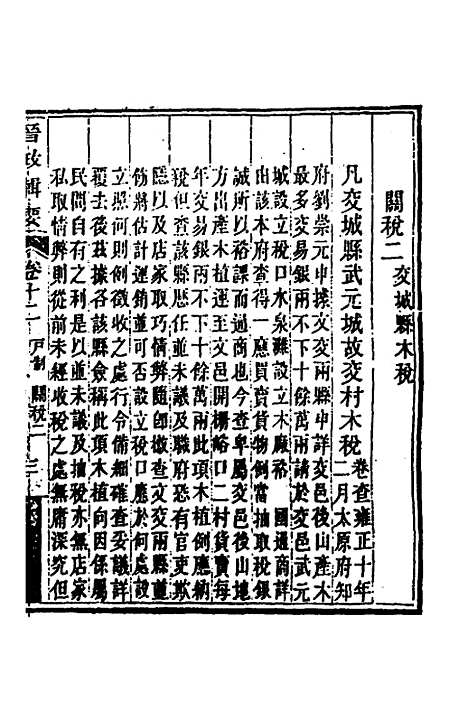 關稅二 交城縣木稅
凡交城縣武元城故交村木稅 卷查雍正十年
二月太原府知
府劉崇元申據文交兩縣申詳交邑後山產木
最多交易銀兩不下十餘萬兩請於交邑武元
城設立稅口水泉灘設立木廠裕 國通商詳
出該本府查得一應買賣貨物例當抽取稅銀
誠所以裕課而通商也今查卑屬交邑後山地
方出產木植運至文邑開柵峪口二村貨賣每
年交易銀兩不下十餘萬兩此項木植例應納
稅但查該縣歷任並未議及職府恐有官吏欺
隱以及店家取巧情弊隨即檄查文交兩縣董
飭將估計運銷並可否設立稅口應於何處設
立照何則例徵收之處行令備細確查妥議詳
覆去後茲據各該縣僉稱此項木植向因係屬
民間自有之利是以並未議及抽稅亦無店家
私取情弊則從前未經收稅之處無庸深究但
晉政輯要 卷十二 戶制 關稅二 三